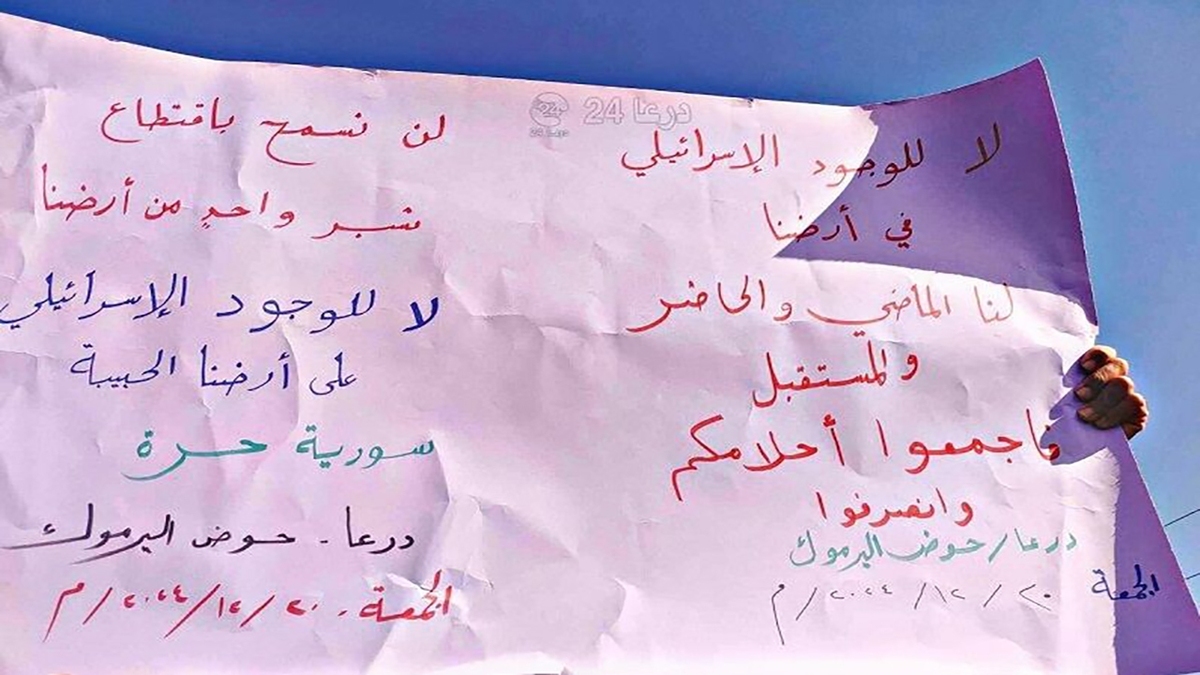 درعا 24
24
درعا 24
لا للوجود الإسرائيلي
في أرضنا
لنا الماضي والحاضر
والمستقبل
فاجمعوا أحلامكم
وانصرفوا
درعا / حوض اليرموك
الجمعة ٢٠ / ١٢ / ٢٠٢٤ / م
لن نسمح باقتطاع
شبر واحدٍ من أرضنا
لا للوجود الإسرائيلي
على أرضنا الحبيبة
سورية حرة
درعا - حوض اليرموك
الجمعة - ٢٠ / ١٢ / ٢٠٢٤ / م